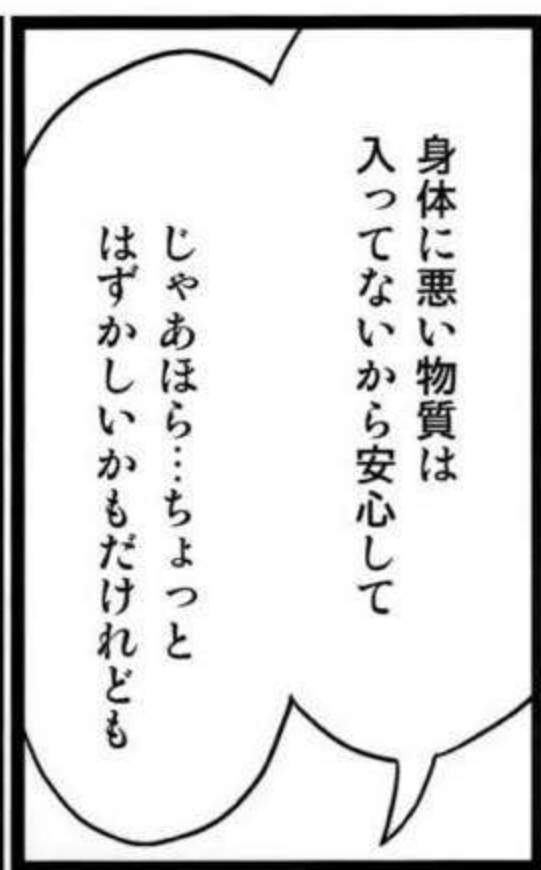 身体に悪い物質は
入ってないから安心して
じゃあほら…ちょっと
はずかしいかもだけれども